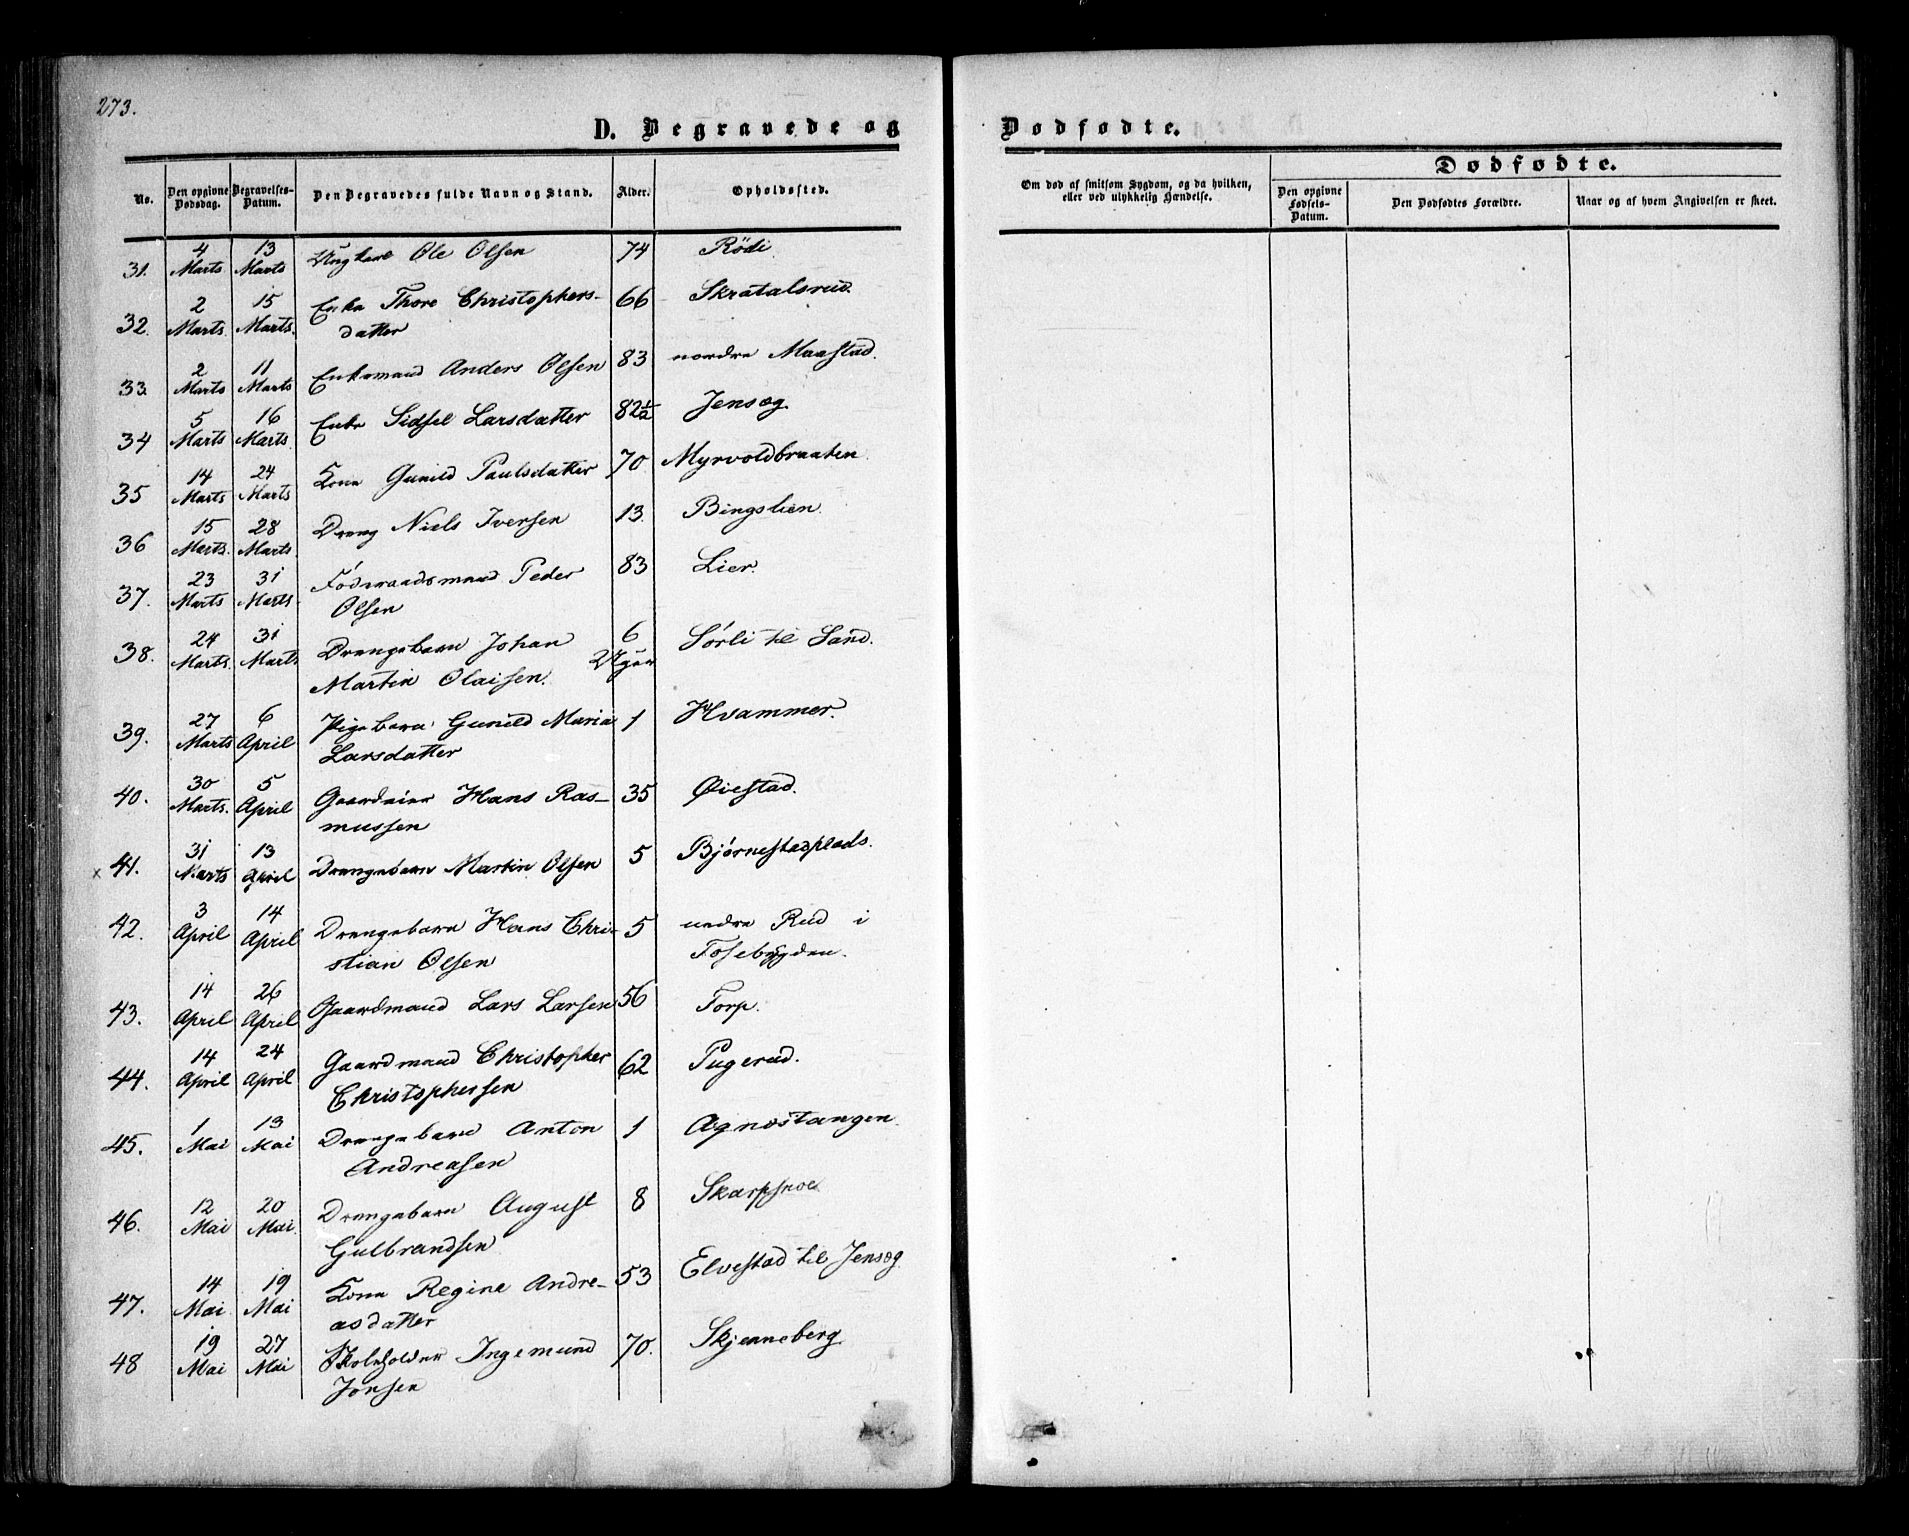 273.
D. Begravede og Dødfødte.
No. Den opgivne Dødsdag. Begravelses-Datum. Den Begravedes fulde Navn og Stand. Alder. Opholdssted. Om død af smitsom Sygdom, og da hvilken, eller ved ulykkelig Hændelse. Dødfødte. Den opgivne Fødsels-Datum. Den Dødfødtes Forældre. Naar og af hvem Angivelsen er skeet.
31. 4 Marts 13 Marts Ungkarl Ole Olsen 74 Rödi
32. 2 Marts. 15 Marts. Enke Thore Christophers-
datter 66 Skratalsrud.
33. 2 Marts 11 Marts Enkemand Anders Olsen 83 nordre Maastad.
34 5 Marts 16 Marts. Enke Sidsel Larsdatter 82½ Jensæg
35 14 Marts 24 Marts Kone Gunild Paulsdatter 70 Myrvoldbraaten.
36 15 Marts. 28 Marts. Dreng Niels Iversen 13. Bingslien.
37. 23 Marts 31 Marts. Föderaadsmand Peder
Olsen 83 Lier.
38. 24 Marts. 31 Marts Drengebarn Johan
Martin Olaisen. 6 Uger Sörli til Sand.
39. 27 Marts 6 April Pigebarn Gunild Maria
Larsdatter 1 Hvammer.
40. 30 Marts. 5 April Gaardeier Hans Ras-
mussen 35 Øiestad.
x 41. 31 Marts 13 April Drengebarn Martin Olsen 5 Björnestadplads.
42. 3 April 14 April Drengebarn Hans Chri-
stian Olsen 5 nedre Rud i
Tosebygden.
43. 14 April 26 April Gaardmand Lars Larsen 56 Torp.
44. 14 April 24 April Gaardmand Christopher
Christophersen 62 Pugerud.
45. 1 Mai 13 Mai Drengebarn Anton
Andreasen 1 Agnæstangen.
46. 12 Mai 20 Mai. Drengebarn August
Gulbrandsen 8 Skarpsnoe
47. 14 Mai. 19 Mai Kone Regine Andre-
asdatter 53 Elvestad til Jensæg.
48 19 Mai 27 Mai Skoleholder Ingemund
Jonsen 70. Skjenneberg